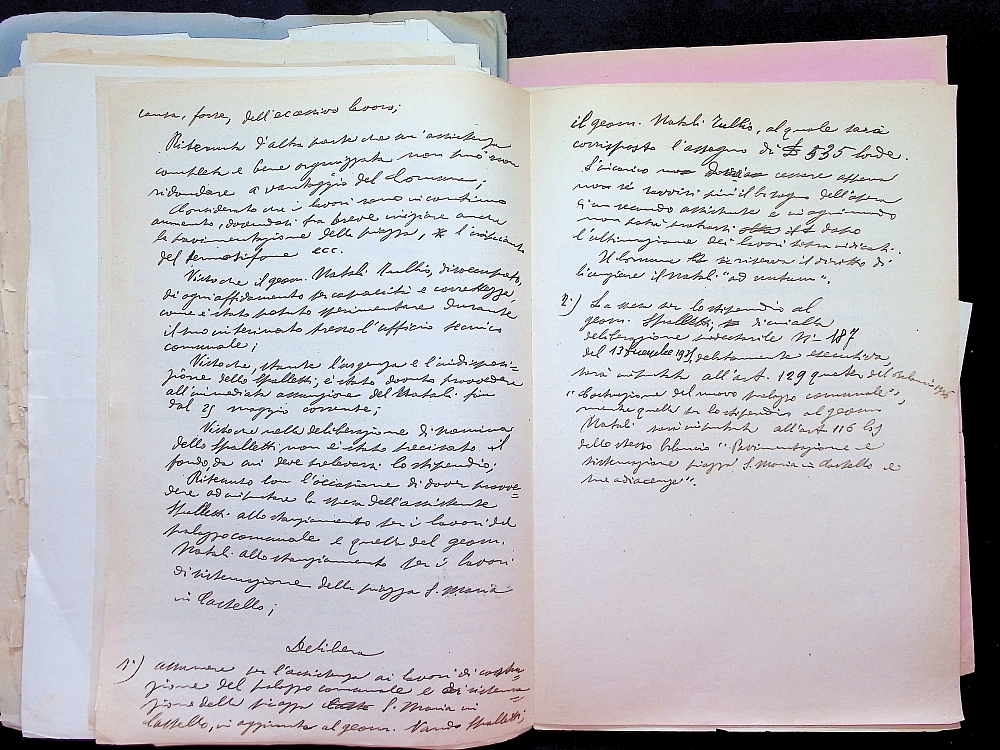 causa, forse, dell'eccessivo lavoro;
Ritenuta d'altra parte che un'assistenza
completa e bene organizzata non può non
ridondare a vantaggio del Comune;
Considerato che i lavori sono in continuo
aumento, dovendosi fra breve iniziare anche
la pavimentazione della piazza, l'
del termosifone ecc.
Visto che il geom. Natali Tullio, disoccupato,
di ogni affidamento per capacità e correttezza,
come è stato potuto sperimentare durante
il suo interinato presso l'ufficio tecnico
comunale;
Visto che, stante l'urgenza e l'indisposi=
zione dello Spalletti, è stato dovuto provvedere
all'immediata assunzione del Natali fin
dal 25 maggio corrente;
Visto che nella deliberazione di nomina
dello Spalletti non è stato precisato il
fondo da cui deve prelevarsi lo stipendio;
Ritenuto con l'occasione di dover provve=
dere ad imputare la spesa dell'assistente
Spalletti allo stanziamento per i lavori del
palazzo comunale e quella del geom.
Natali allo stanziamento per i lavori
di sistemazione della piazza S. Maria
in Castello;
Delibera
1°) assumere per l'assistenza ai lavori di costru=
zione del palazzo comunale e di sistema=
zione della piazza S. Maria in
Castello, in aggiunta al geom. Nando Spalletti,
il geom. Natali Tullio, al quale sarà
corrisposto l'assegno di £ 535 lorde.
L'incarico dovrà cessare appena
non si ravvisi più il bisogno dell'opera
di un secondo assistente e in ogni modo
non potrà protrarsi oltre dopo
l'ultimazione dei lavori sopra indicati.
Il Comune si riserva il diritto di
licenziare il Natali "ad nutum".
2°) La spesa per lo stipendio al
geom. Spalletti, di cui alla
deliberazione podestarile N° 187
del 13 Dicembre 1935, debitamente esecutiva
sarà imputata all'art. 129 quater del Bilancio 1936
"Costruzione del nuovo palazzo comunale",
mentre quella per lo stipendio al geom.
Natali sarà imputata all'art 116 bis
dello stesso bilancio "Pavimentazione e
sistemazione piazza S. Maria in Castello e
sue adiacenze".